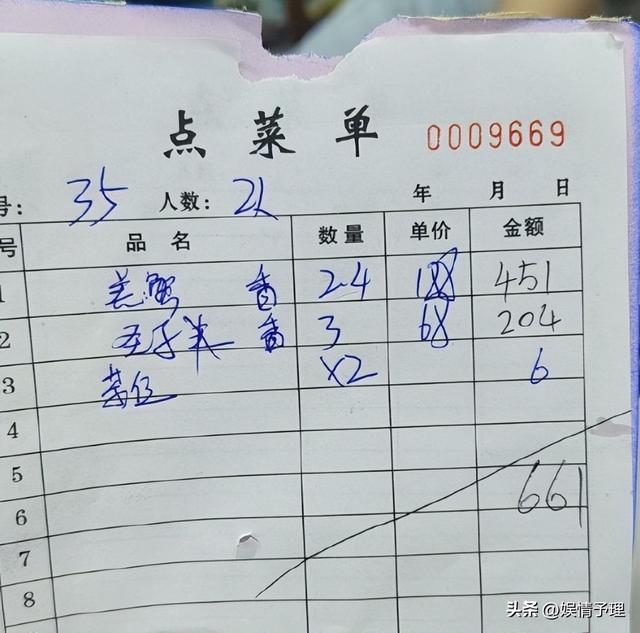 点菜单 0009669
号: 35 人数: 2人 年 月 日
号 品名 数量 单价 金额
1 羔蟹 香 2.4 188 451
2 香 3 68 204
3 茶位 x2 6
4
5
6 661
7
8
头条 @娱情予理